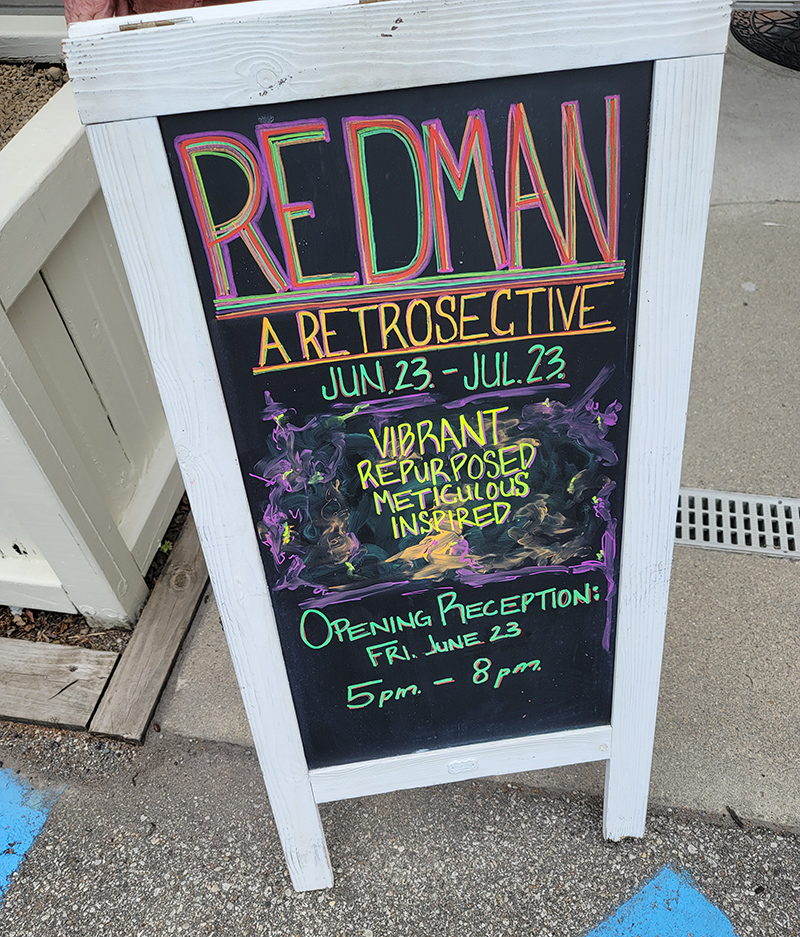 REDMAN
A RETROSECTIVE
JUN. 23. - JUL. 23.
VIBRANT
REPURPOSED
METICULOUS
INSPIRED
OPENING RECEPTION:
FRI. JUNE 23
5pm. - 8pm.